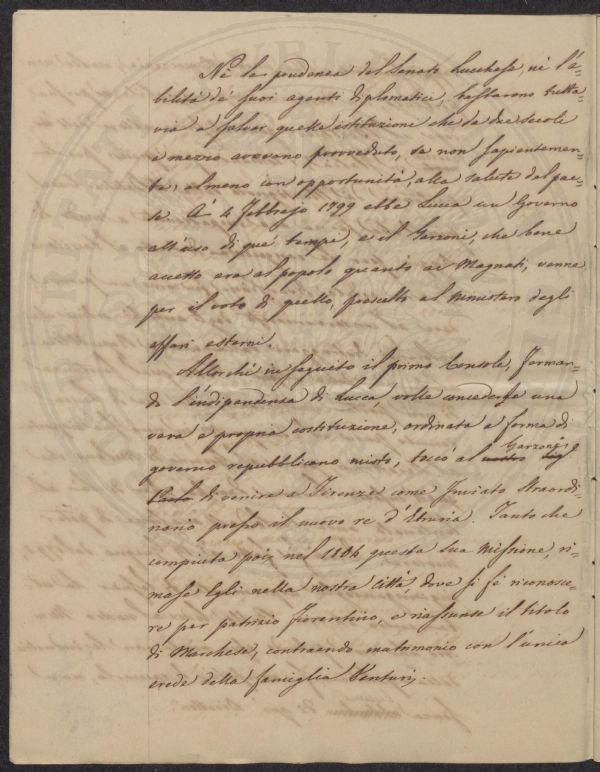 Nè la prudenza del Senato Lucchese, nè l'a-
bilità de' suoi agenti diplomatici, bastarono tutta-
via a salvar quelle istituzioni che da due secoli
e mezzo avevano provveduto, se non sapientemen-
te, almeno con opportunità, alla salute del pae-
se. A' 4 Febbrajo 1799 ebbe Lucca un Governo
all'uso di que' tempi, e il Garzoni, che bene
accetto era al popolo quanto ai Magnati, venne
per il voto di quello, prescelto al Ministero degli
affari esterni.
Allorchè in seguito il primo Console, ferman-
do l'indipendenza di Lucca, volle concederle una
vera e propria costituzione, ordinata a forma di
governo repubblicano misto, toccò al nostro Garzoni
Paolo di venire a Firenze come Inviato Straordi-
nario presso il nuovo re d'Etruria. Tanto che
compiuta poi nel 1804 questa sua missione, ri-
mase Egli nella nostra città, dove si fè riconosce-
re per patrizio fiorentino, e riassunse il titolo
di Marchese, contraendo matrimonio con l'unica
erede della famiglia Venturi.